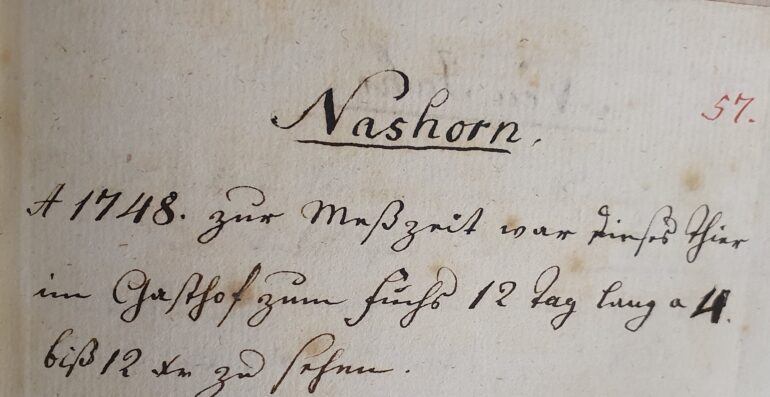 57.
Nashorn.
A 1748. zur Meßzeit war dieses Thier
im Gasthof zum fuchs 12 Tag lang a 4.
biß 12 Xr zu sehen.